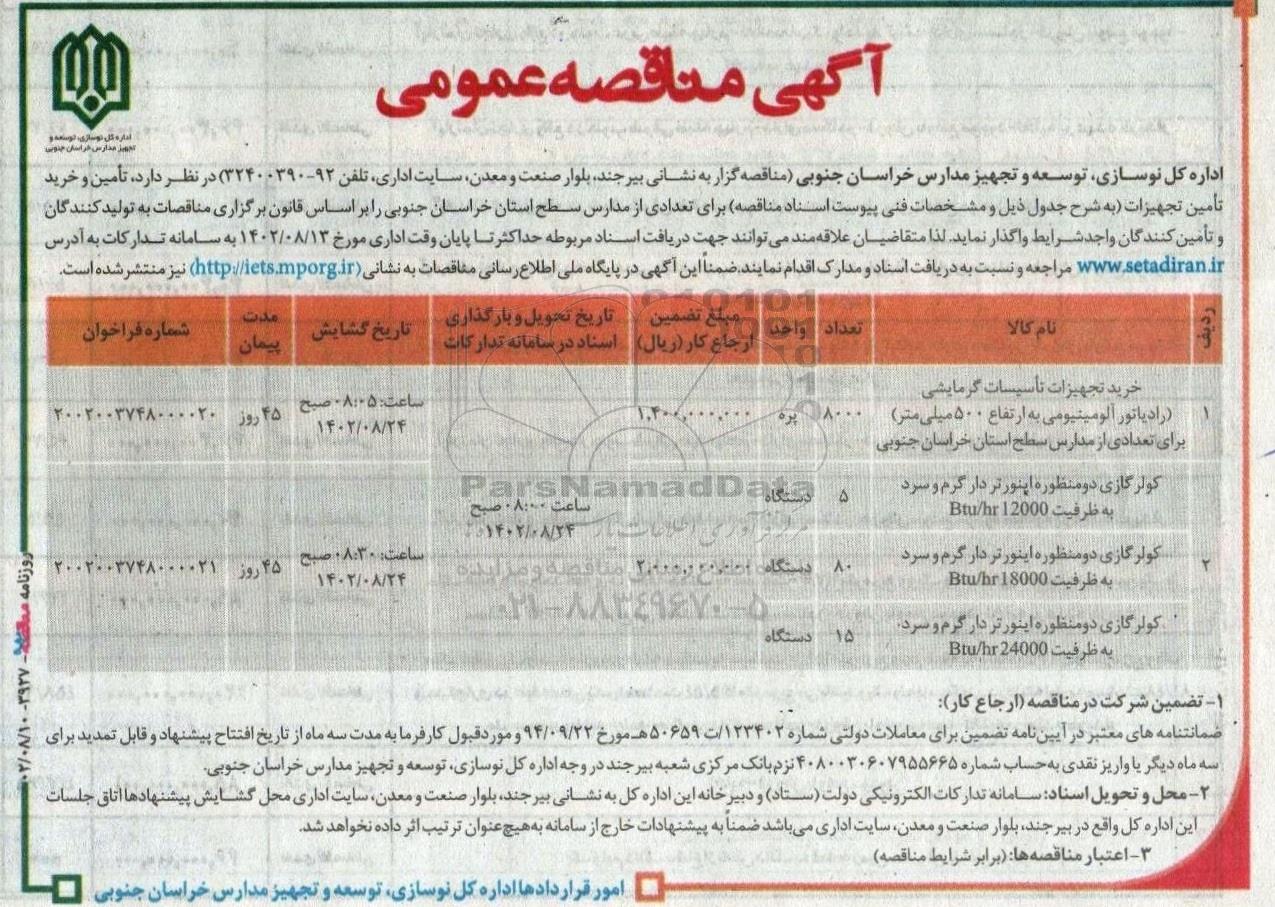 آگهی مناقصه عمومی
اداره کل نوسازی، توسعه و
تجهیز مدارس خراسان جنوبی
اداره کل نوسازی، توسعه و تجهیز مدارس خراسان جنوبی (مناقصه گزار به نشانی بیرجند، بلوار صنعت و معدن، سایت اداری، تلفن ۹۲-۳۲۴۰۰۳۹۰) در نظر دارد، تأمین و خرید
تأمین تجهیزات (به شرح جدول ذیل و مشخصات فنی پیوست اسناد مناقصه) برای تعدادی از مدارس سطح استان خراسان جنوبی را بر اساس قانون برگزاری مناقصات به تولیدکنندگان
و تأمین کنندگان واجد شرایط واگذار نماید. لذا متقاضیان علاقه‌مند می‌توانند جهت دریافت اسناد مربوطه حداکثر تا پایان وقت اداری مورخ ۱۴۰۲/۰۸/۱۳ به سامانه تدارکات به آدرس
www.setadiran.ir مراجعه و نسبت به دریافت اسناد و مدارک اقدام نمایند.ضمناً این آگهی در پایگاه ملی اطلاع رسانی مناقصات به نشانی (http://iets.mporg.ir) نیز منتشر شده است.
ردیف نام کالا تعداد واحد مبلغ تضمین ارجاع کار (ریال) تاریخ تحویل و بارگذاری اسناد در سامانه تدارکات تاریخ گشایش مدت پیمان شماره فراخوان
۱ خرید تجهیزات تأسیسات گرمایشی
(رادیاتور آلومینیومی به ارتفاع ۵۰۰ میلی متر)
برای تعدادی از مدارس سطح استان خراسان جنوبی
۸۰۰۰ پره ۱.۴۰۰.۰۰۰.۰۰۰
ساعت: ۰۸:۰۵ صبح
۱۴۰۲/۰۸/۲۴
۴۵ روز ۲۰۰۲۰۰۳۷۴۸۰۰۰۰۲۰
ساعت ۰۸:۰۰ صبح
۱۴۰۲/۰۸/۲۴
۲ کولر گازی دومنظوره اینورتر دار گرم و سرد
به ظرفیت Btu/hr 12000
۵ دستگاه
کولر گازی دومنظوره اینورتر دار گرم و سرد
به ظرفیت Btu/hr 18000
۸۰ دستگاه ۲.۰۰۰.۰۰۰.۰۰۰
ساعت: ۰۸:۳۰ صبح
۱۴۰۲/۰۸/۲۴
۴۵ روز ۲۰۰۲۰۰۳۷۴۸۰۰۰۰۲۱
کولر گازی دومنظوره اینورتر دار گرم و سرد
به ظرفیت Btu/hr 24000
۱۵ دستگاه
ParsNamadData
۰۲۱-۸۸۳۴۹۶۷۰-۵
۱- تضمین شرکت در مناقصه (ارجاع کار):
ضمانتنامه های معتبر در آیین‌نامه تضمین برای معاملات دولتی شماره ۱۲۳۴۰۲/ت ۵۰۶۵۹ هـ مورخ ۹۴/۰۹/۲۲ و مورد قبول کارفرما به مدت سه ماه از تاریخ افتتاح پیشنهاد و قابل تمدید برای
سه ماه دیگر یا واریز نقدی به حساب شماره ۴۰۸۰۰۳۰۶۰۷۹۵۵۶۶۵ نزد بانک مرکزی شعبه بیرجند در وجه اداره کل نوسازی، توسعه و تجهیز مدارس خراسان جنوبی.
۲- محل و تحویل اسناد: سامانه تدارکات الکترونیکی دولت (ستاد) و دبیرخانه این اداره کل به نشانی بیرجند، بلوار صنعت و معدن، سایت اداری محل گشایش پیشنهادها اتاق جلسات
این اداره کل واقع در بیرجند، بلوار صنعت و معدن، سایت اداری می‌باشد ضمناً به پیشنهادات خارج از سامانه به هیچ عنوان ترتیب اثر داده نخواهد شد.
۳- اعتبار مناقصه‌ها: (برابر شرایط مناقصه)
امور قراردادها اداره کل نوسازی، توسعه و تجهیز مدارس خراسان جنوبی
روزنامه مناقصه - ۳۹۲۷-۰۲/۰۸/۱۰